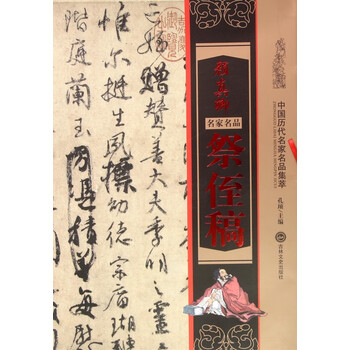 亡姪贈贊善大夫季明之靈
惟爾挺生夙標幼德宗廟瑚
階庭蘭玉方憑積善每慰
颜真卿
名家名品
祭侄稿
中国历代名家名品集萃
主编
吉林文史出版社